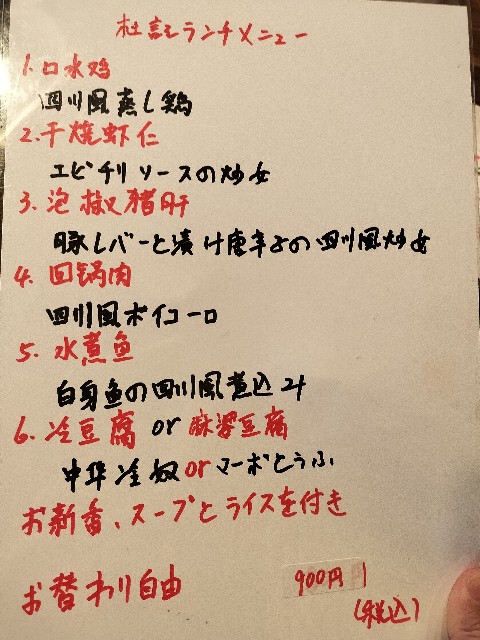 杜記ランチメニュー
1.口水鸡
四川風蒸し鶏
2.干燒虾仁
エビチリソースの炒め
3.泡椒猪肝
豚レバーと漬け唐辛子の四川風炒め
4.回锅肉
四川風ホイコーロ
5.水煮鱼
白身魚の四川風煮込み
6.冷豆腐 or 麻婆豆腐
中华冷奴orマーボとうふ
お新香、スープとライスを付き
お替わり自由 900円
(税込)